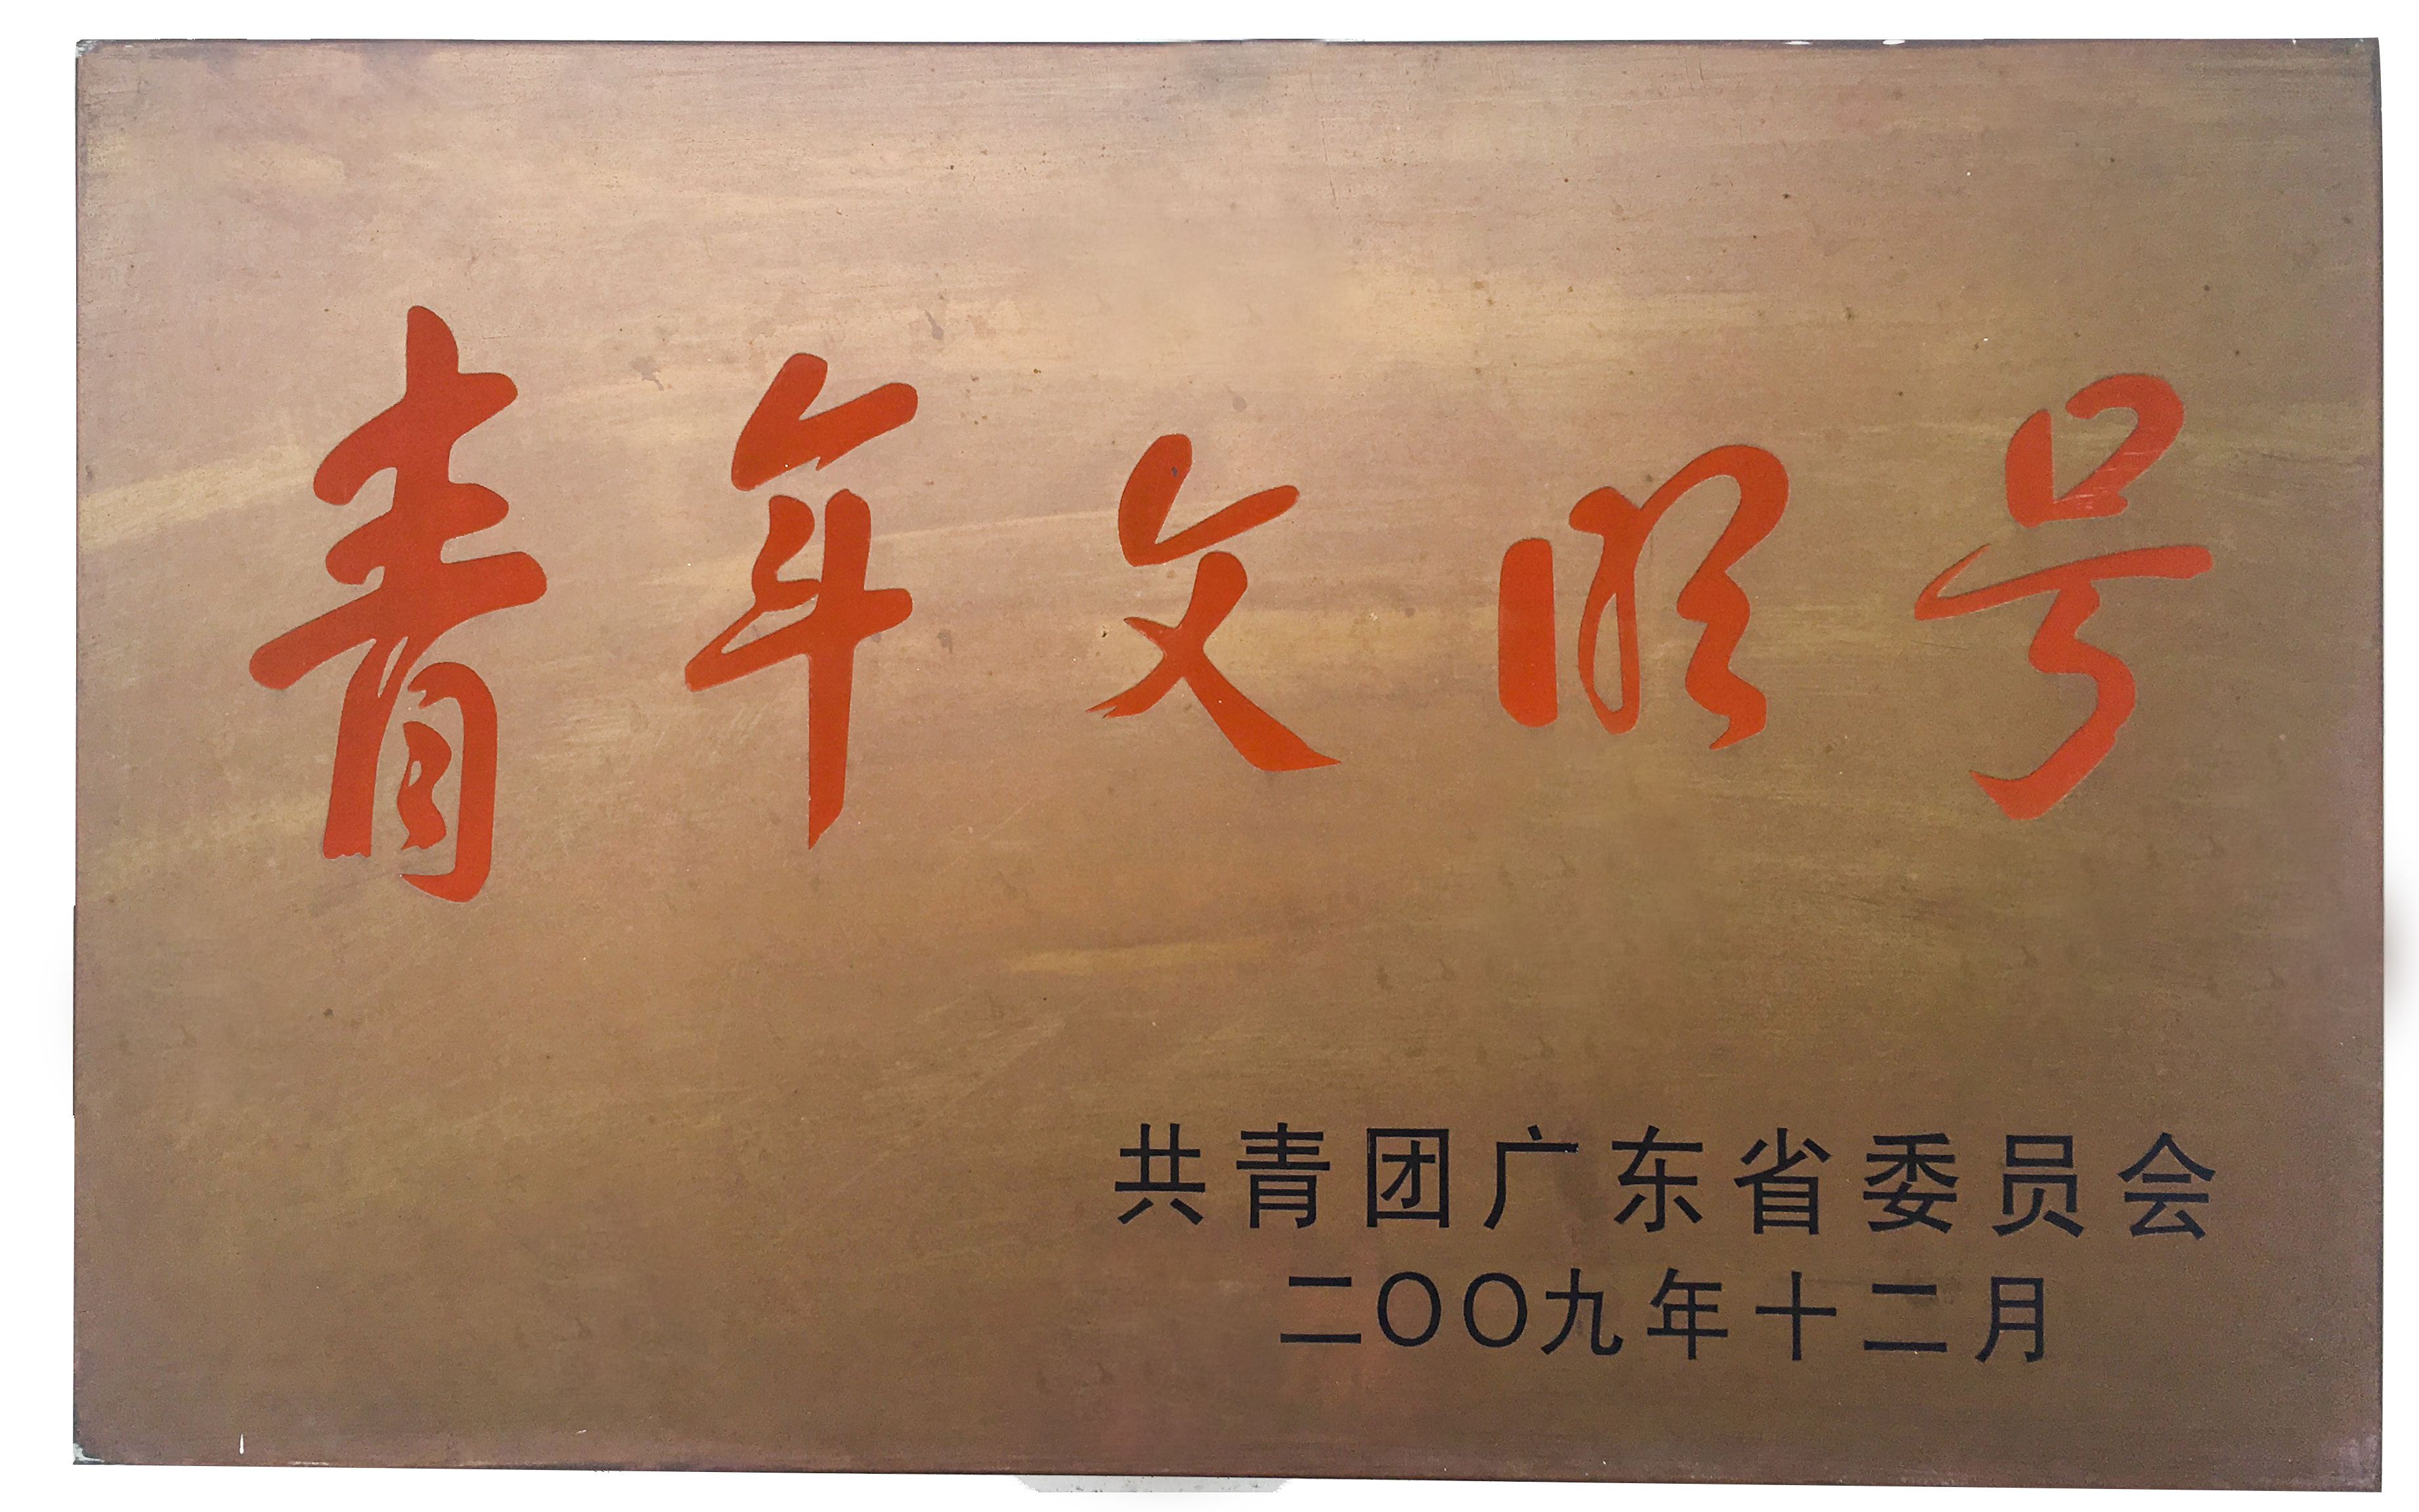 青年文明号
共青团广东省委员会
二〇〇九年十二月